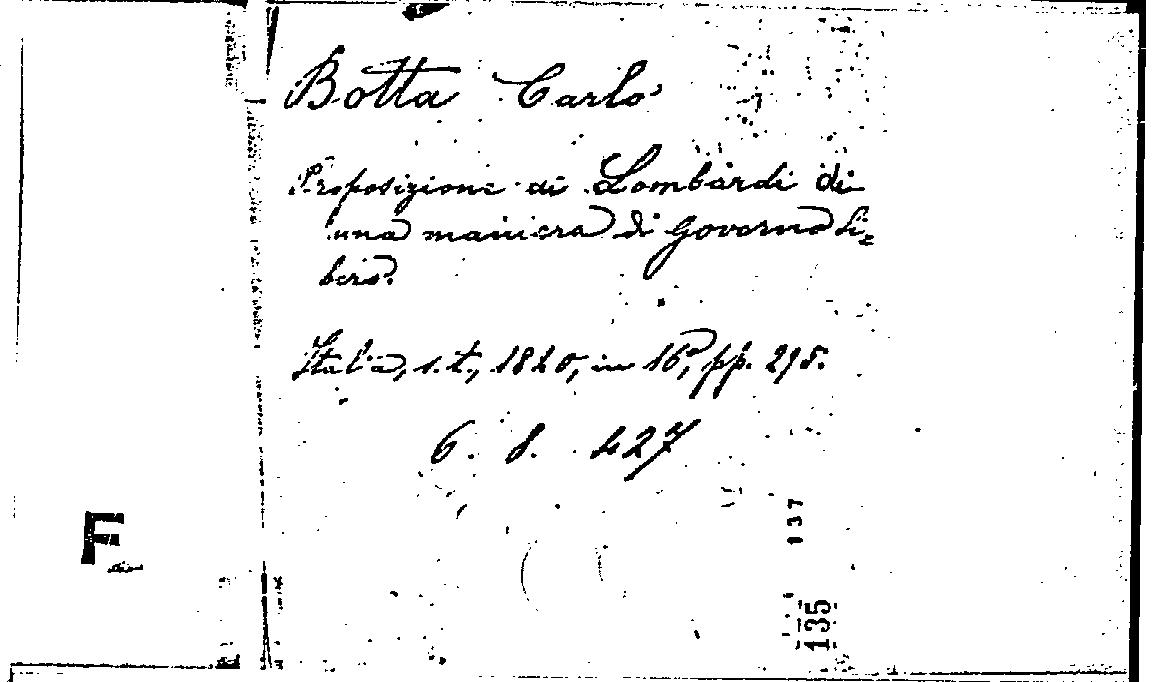 Botta Carlo
Proposizione ai Lombardi di
una maniera di Governo li=
bero.
Italia, s. t., 1820, in 16°, pp. 295.
6. 8. 427
F
137
135